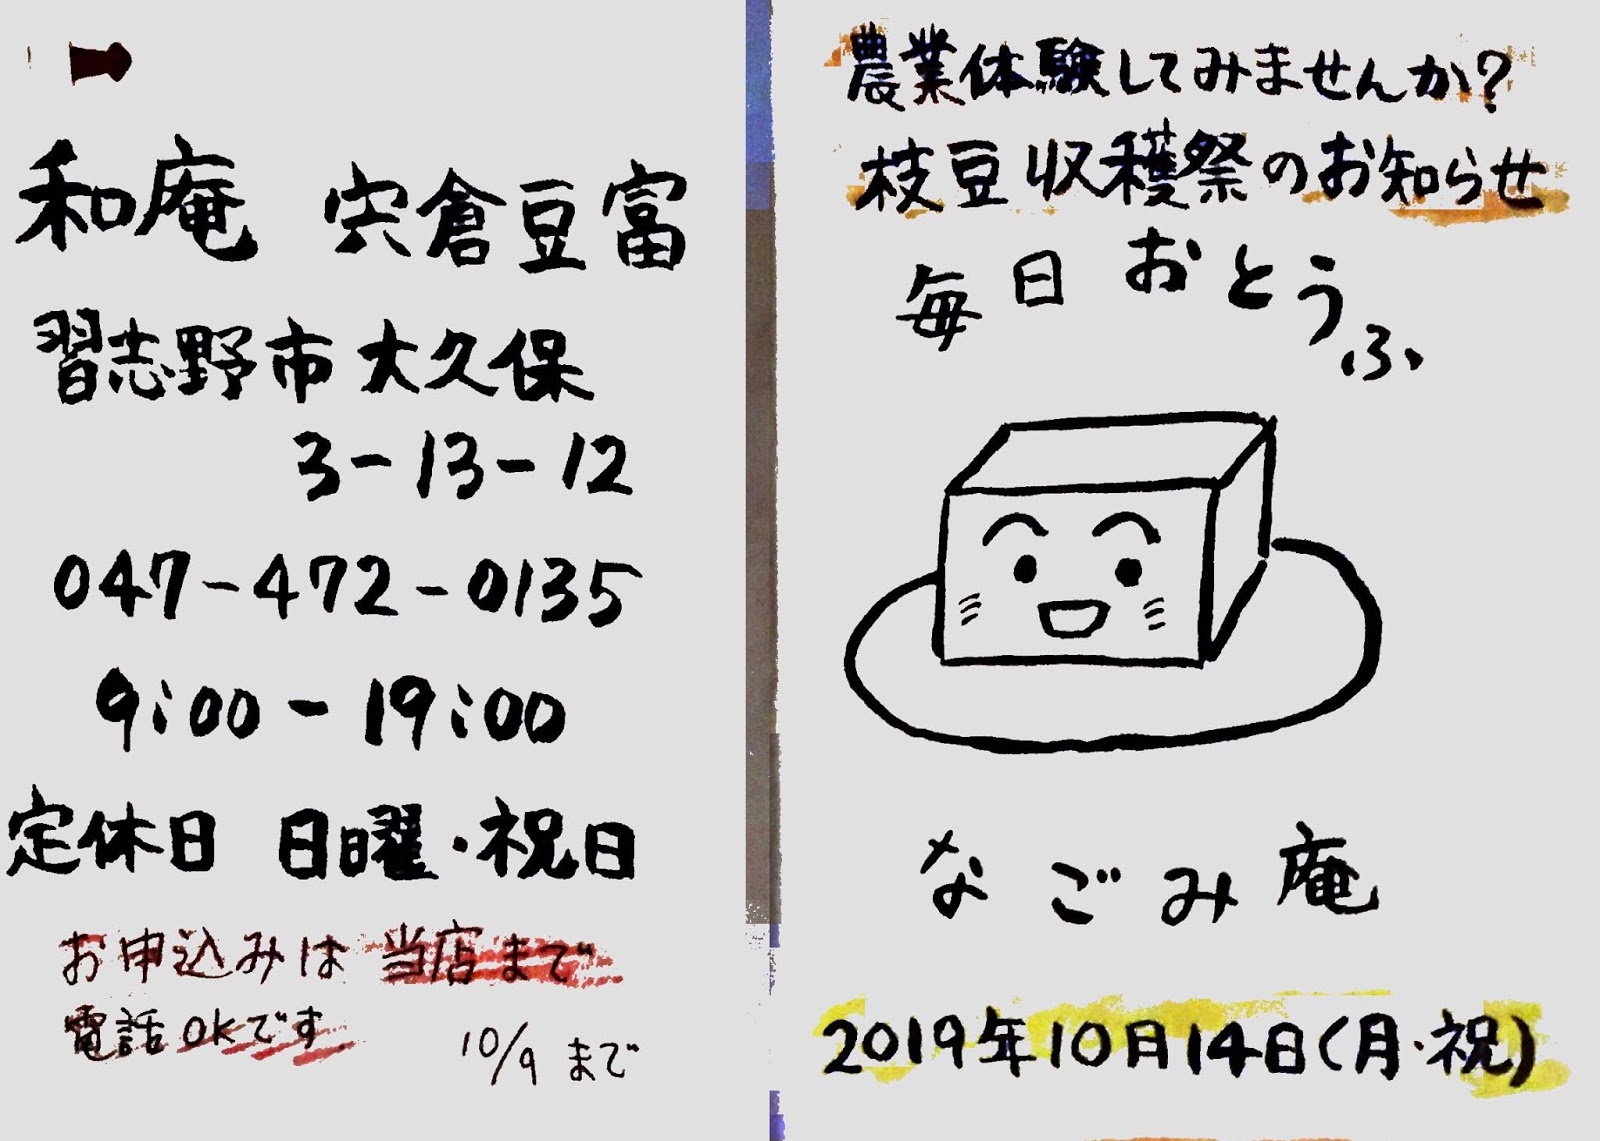 和庵 宍倉豆富
習志野市大久保
3-13-12
047-472-0135
9:00-19:00
定休日 日曜・祝日
お申込みは当店まで
電話OKです
10/9まで
農業体験してみませんか?
枝豆収穫祭のお知らせ
毎日おとうふ
なごみ庵
2019年10月14日(月・祝)